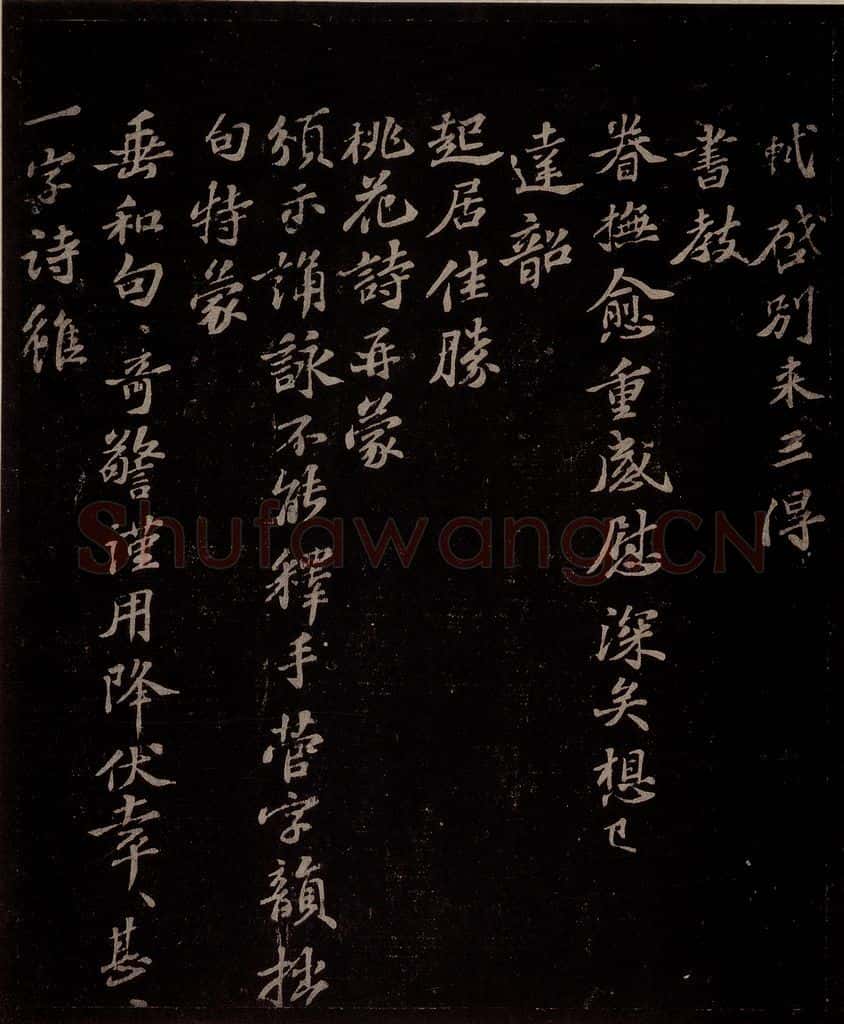 軾啓別来三得
書教
眷撫愈重感慰深矣想已
達韶
起居佳勝
桃花詩再蒙
頒示誦詠不能釋手菅字韻拙
句特蒙
垂和句、奇警謹用降伏幸、甚、
一字詩雖
Shufawang.CN